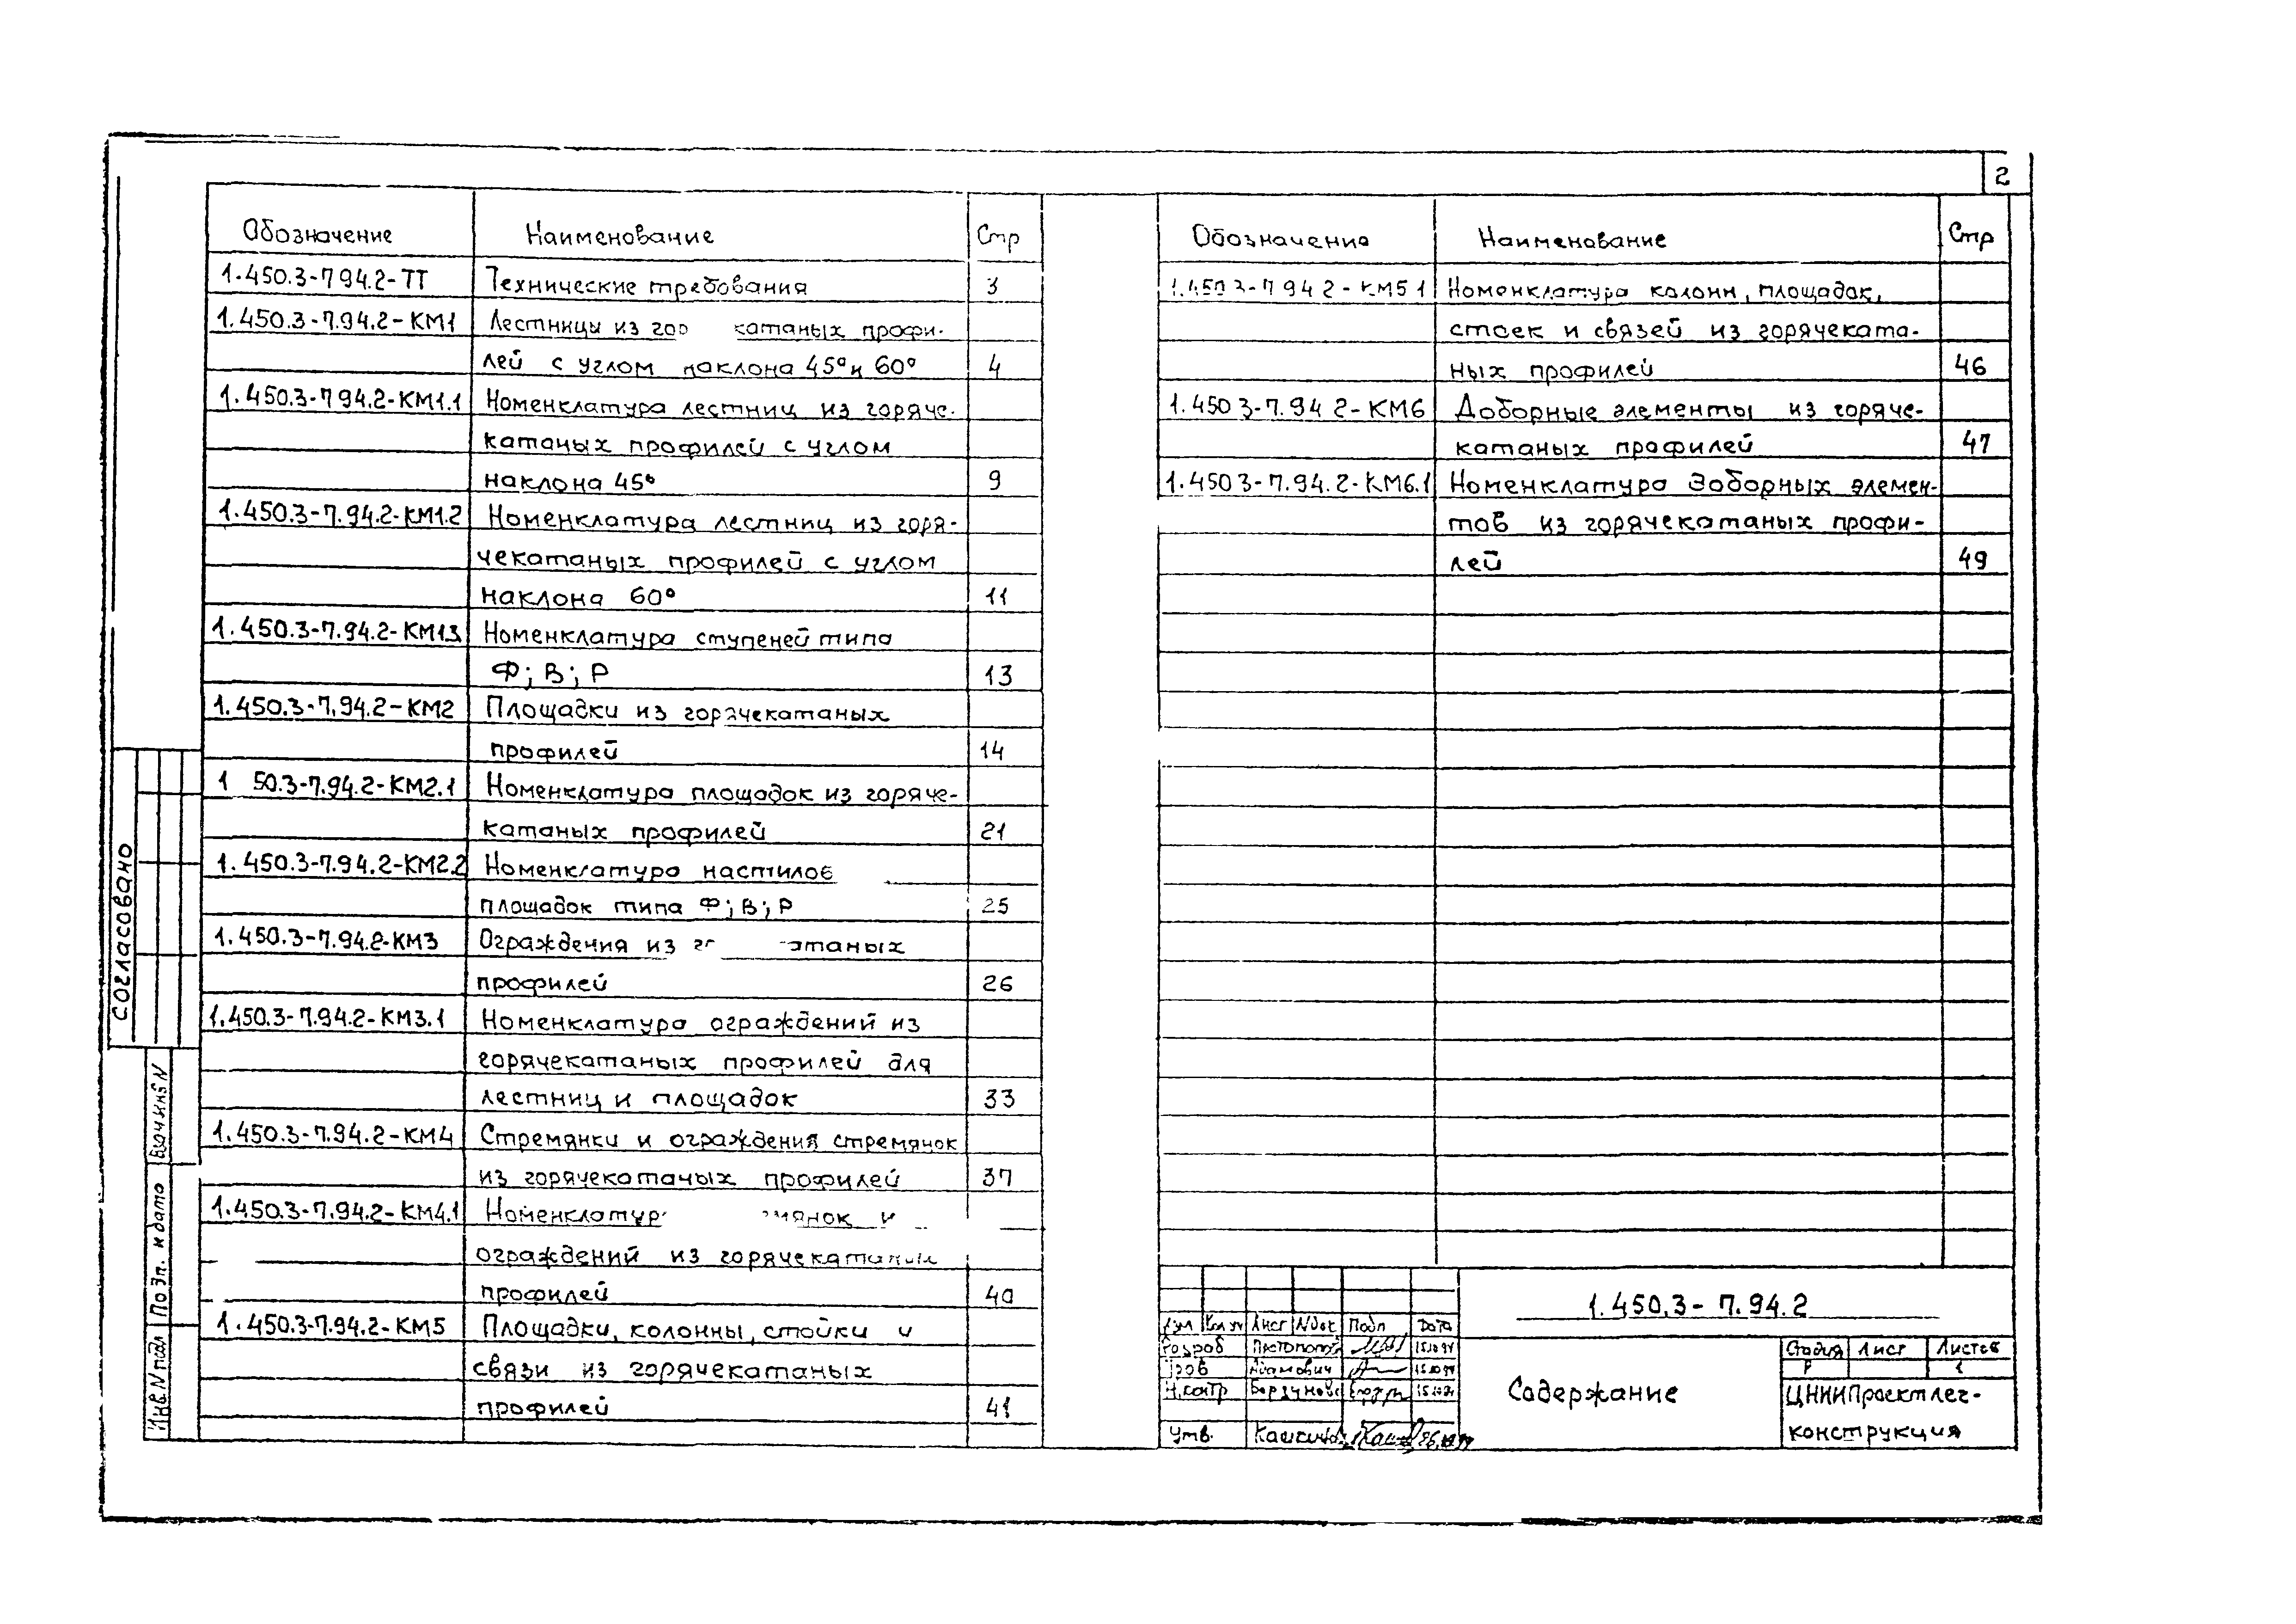 2
Обозначение Наименование Стр
1.450.3-7.94.2-ТТ Технические требования 3
1.450.3-7.94.2-КМ1 Лестницы из гор катаных профи-
лей с углом наклона 45° и 60° 4
1.450.3-7.94.2-КМ1.1 Номенклатура лестниц из горяче-
катаных профилей с углом
наклона 45° 9
1.450.3-7.94.2-КМ1.2 Номенклатура лестниц из горя-
чекатаных профилей с углом
наклона 60° 11
1.450.3-7.94.2-КМ1.3 Номенклатура ступеней типа
Ф; В; Р 13
1.450.3-7.94.2-КМ2 Площадки из горячекатаных
профилей 14
1 50.3-7.94.2-КМ2.1 Номенклатура площадок из горяче-
катаных профилей 21
1.450.3-7.94.2-КМ2.2 Номенклатура настилов
площадок типа Ф; В; Р 25
1.450.3-7.94.2-КМ3 Ограждения из г атаных
профилей 26
1.450.3-7.94.2-КМ3.1 Номенклатура ограждений из
горячекатаных профилей для
лестниц и площадок 33
1.450.3-7.94.2-КМ4 Стремянки и ограждения стремянок
из горячекатаных профилей 37
1.450.3-7.94.2-КМ4.1 Номенклатур мянок и
ограждений из горячекатаных
профилей 40
1.450.3-7.94.2-КМ5 Площадки, колонны, стойки и
связи из горячекатаных
профилей 41
Обозначение Наименование Стр
1.450 3-7 94 2-КМ5 1 Номенклатура колонн, площадок,
стоек и связей из горячеката-
ных профилей 46
1.450 3-7.94 2-КМ6 Доборные элементы из горяче-
катаных профилей 47
1.450 3-7.94.2-КМ6.1 Номенклатура доборных элемен-
тов из горячекатаных профи-
лей 49
Согласовано
Взам инв N
Подп. и дата
Инв N подл
1.450.3-7.94.2
Кол уч Лист Nдок Подп Дата
Разраб 15.10.94
Пров Адамович 15.10.94
Н.контр 15.10.94
Утв.
Содержание
Стадия Лист Листов
Р 1
ЦНИИПроектлег-
конструкция